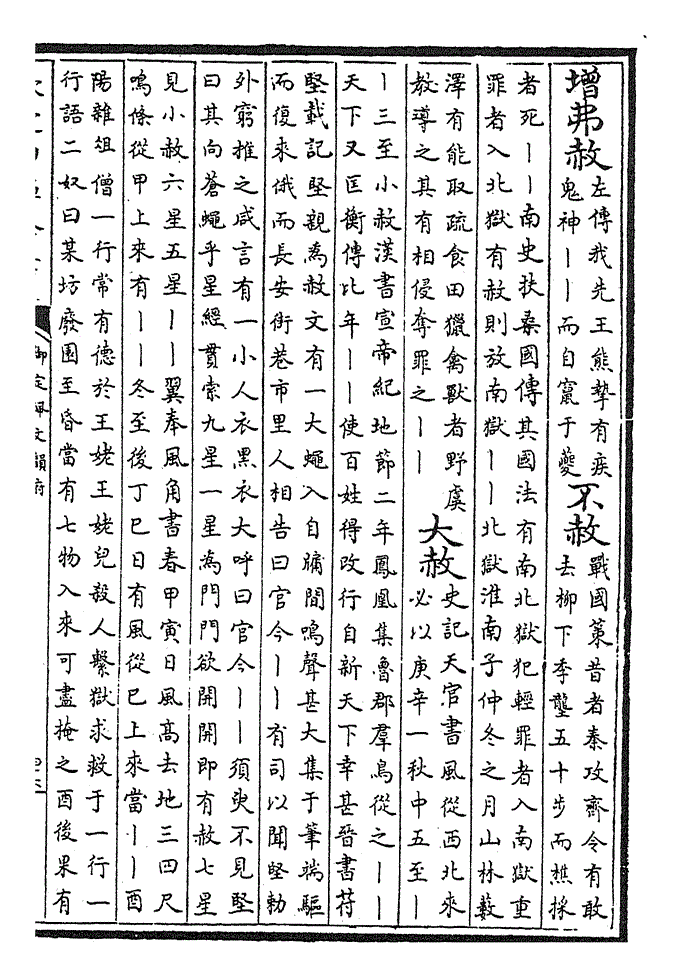 增弗赦
左傳我先王熊摯有疾
鬼神丨丨而自竄于夔
不赦
戰國策昔者秦攻齊令有敢
去柳下季壟五十步而樵採
者死丨丨南史扶桑國傳其國法有南北獄犯輕罪者入南獄重
罪者入北獄有赦則放南獄丨丨北獄淮南子仲冬之月山林藪
澤有能取疏食田獵禽獸者野虞
教導之其有相侵奪罪之丨丨
大赦
史記天官書風從西北來
必以庚辛一秋中五至丨
丨三至小赦漢書宣帝紀地節二年鳳凰集魯郡羣鳥從之丨丨
天下又匡衡傳比年丨丨使百姓得改行自新天下幸甚晉書苻
堅載記堅親為赦文有一大蠅入自牖間鳴聲甚大集于筆端驅
而復來俄而長安街巷市里人相告曰官今丨丨有司以聞堅勅
外窮推之咸言有一小人衣黑衣大呼曰官今丨丨須臾不見堅
曰其向蒼蠅乎星經貫索九星一星為門門欲開開即有赦七星
見小赦六星五星丨丨翼奉風角書春甲寅日風高去地三四尺
鳴條從甲上來有丨丨冬至後丁巳日有風從巳上來當丨丨酉
陽雜俎僧一行常有德於王姥王姥兒殺人繫獄求救于一行一
行語二奴曰某坊廢園至昏當有七物入來可盡掩之酉後果有
御定佩文韻府